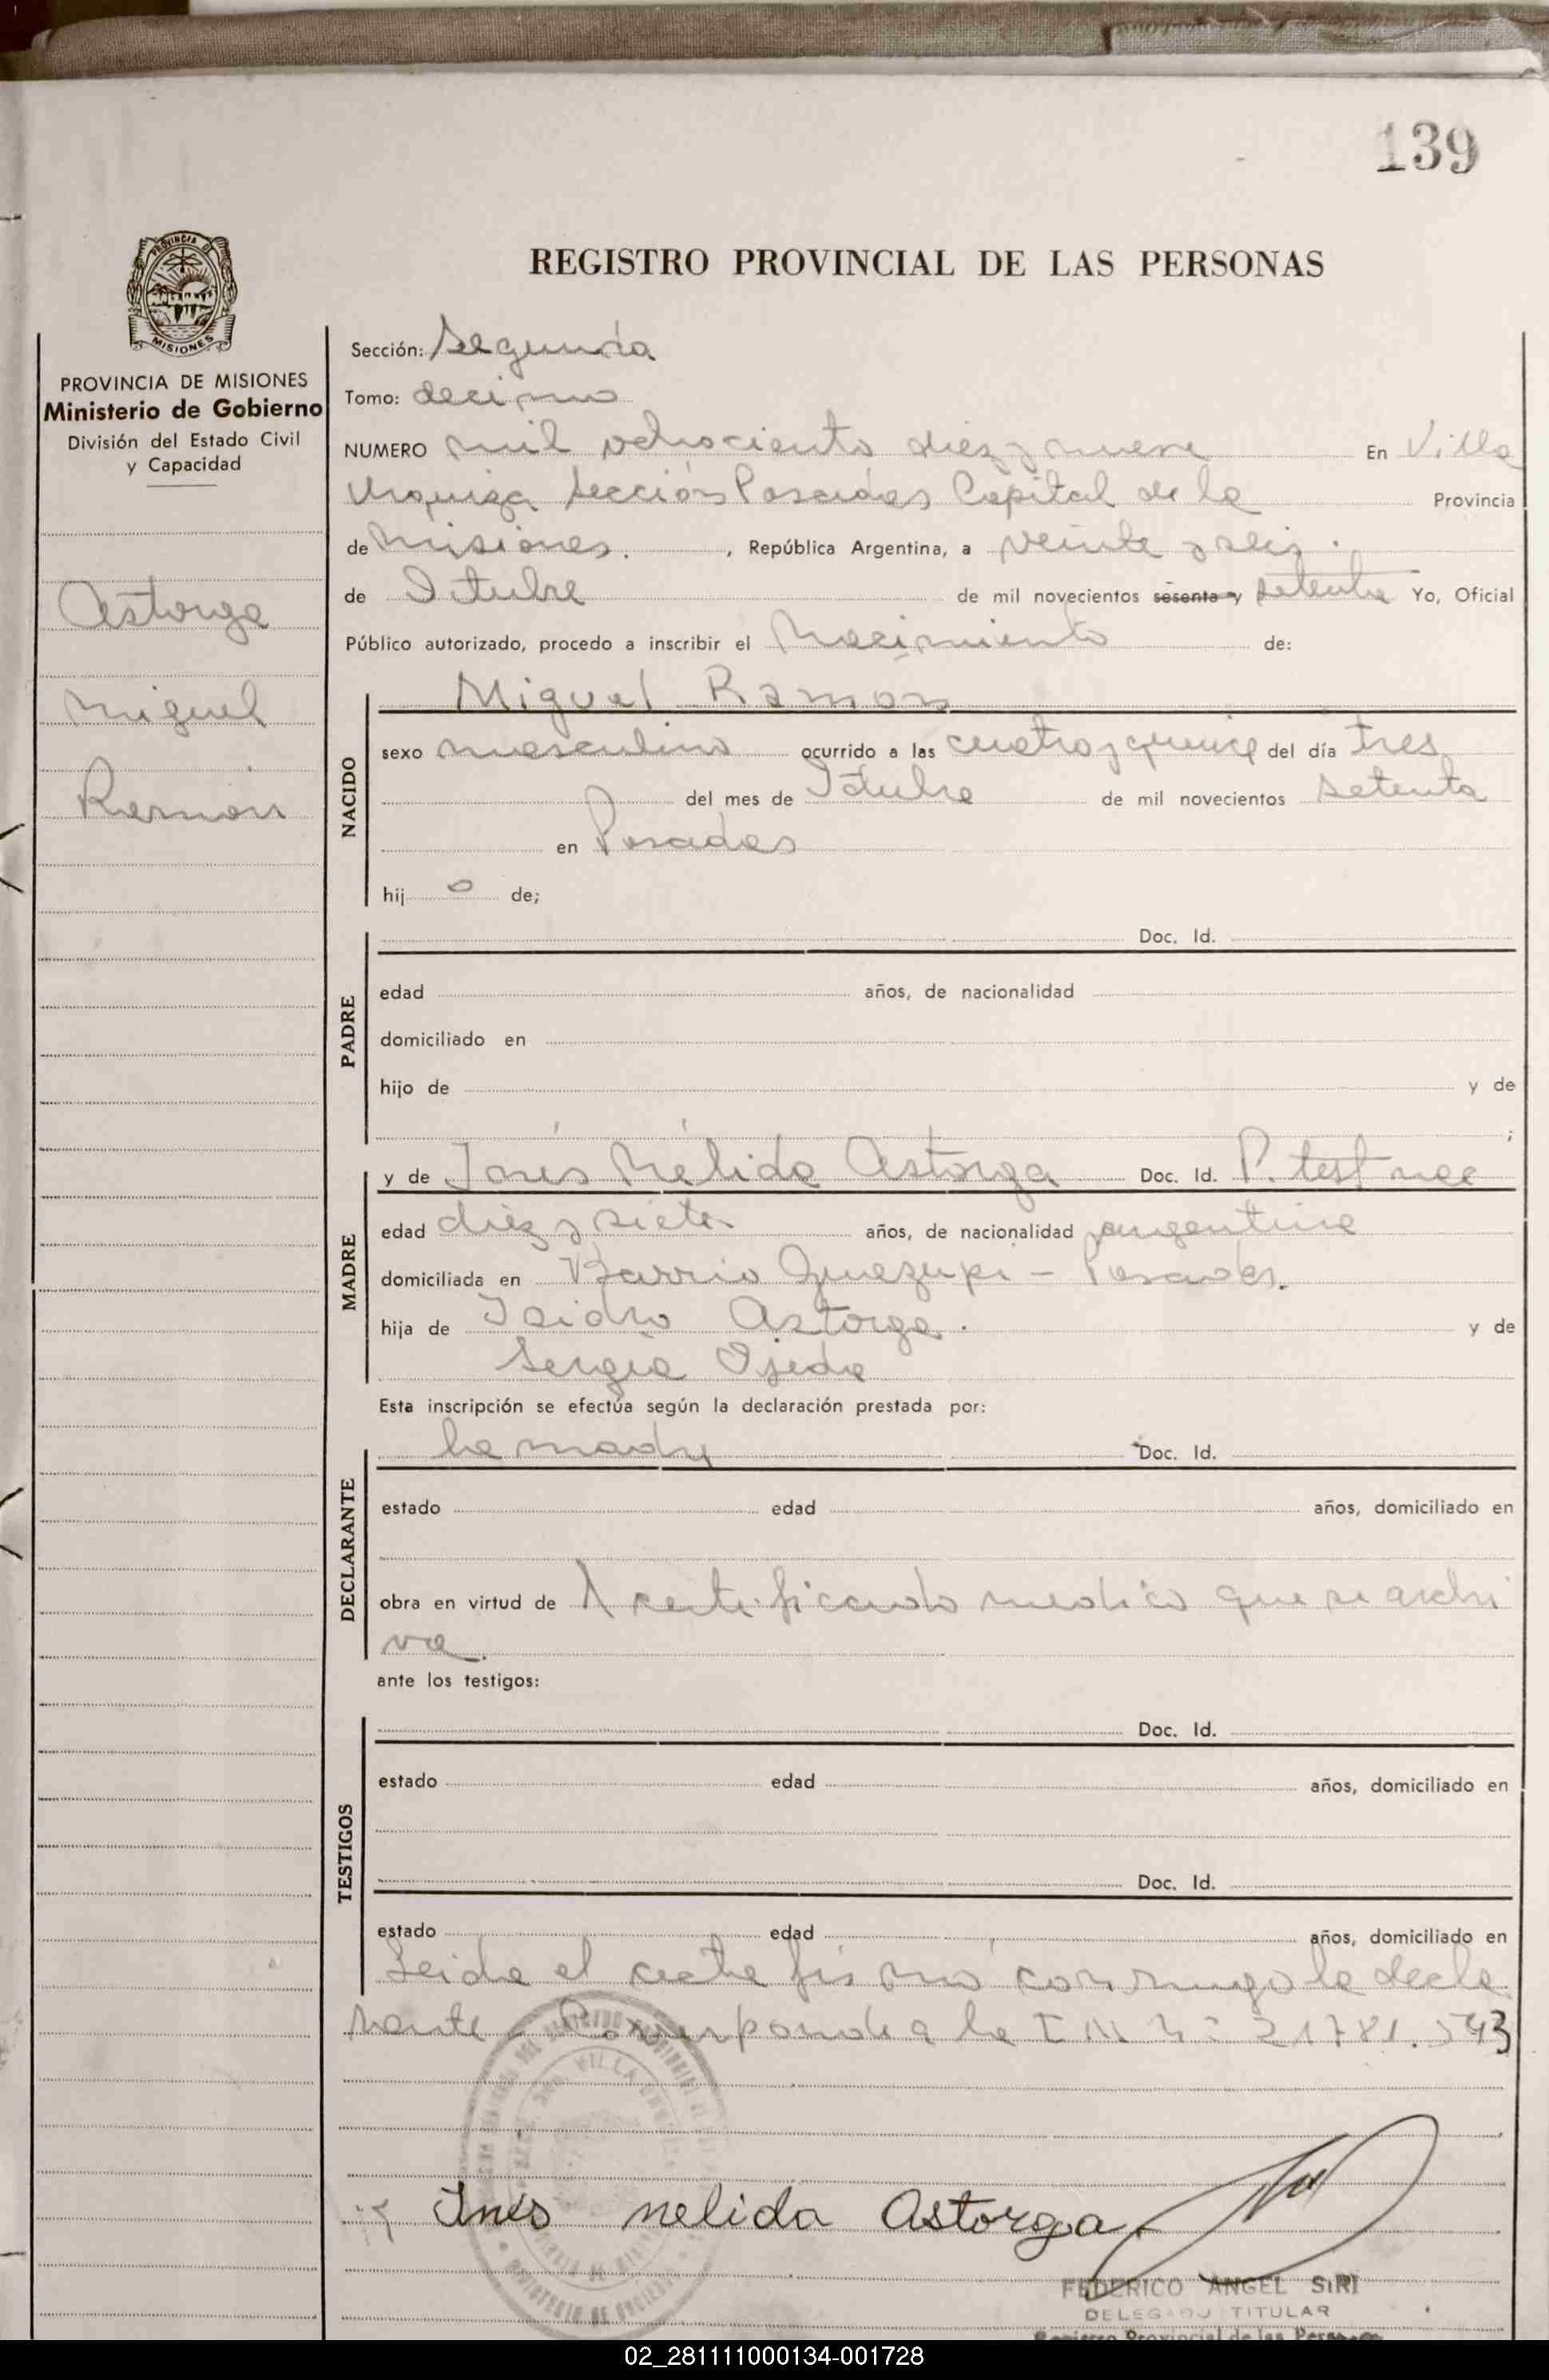 139
REGISTRO PROVINCIAL DE LAS PERSONAS
PROVINCIA DE MISIONES
Ministerio de Gobierno
División del Estado Civil
y Capacidad
Astorga
Miguel
Ramón
Sección: Segunda
Tomo: decimo
NUMERO mil ochociento diez y nueve En Villa
Urquiza Sección Posadas Capital de la Provincia
de Misiones. , República Argentina, a veinte y seis.
de Octubre de mil novecientos sesenta y setenta Yo, Oficial
Público autorizado, procedo a inscribir el Nacimiento de:
NACIDO
Miguel Ramón
sexo masculino ocurrido a las cuatro y quince del día tres
del mes de Octubre de mil novecientos setenta
en Posadas
hij o de;
PADRE
Doc. Id.
edad años, de nacionalidad
domiciliado en
hijo de y de
;
MADRE
y de Inés Nélida Astorga Doc. Id. P. test nac
edad diez y siete años, de nacionalidad argentina
domiciliada en Barrio - Posadas.
hija de Isidro Astorga. y de
Sergia Ojeda
Esta inscripción se efectúa según la declaración prestada por:
DECLARANTE
la madre Doc. Id.
estado edad años, domiciliado en
obra en virtud de certificado medico que se archi
va.
ante los testigos:
TESTIGOS
Doc. Id.
estado edad años, domiciliado en
Doc. Id.
estado edad años, domiciliado en
Leida el acta firmó conmigo la decla
rante - Corresponde a la
Inés nelida Astorga
FEDERICO ANGEL SIRI
DELEGADO TITULAR
Registro Provincial de las Personas
02_281111000134-001728